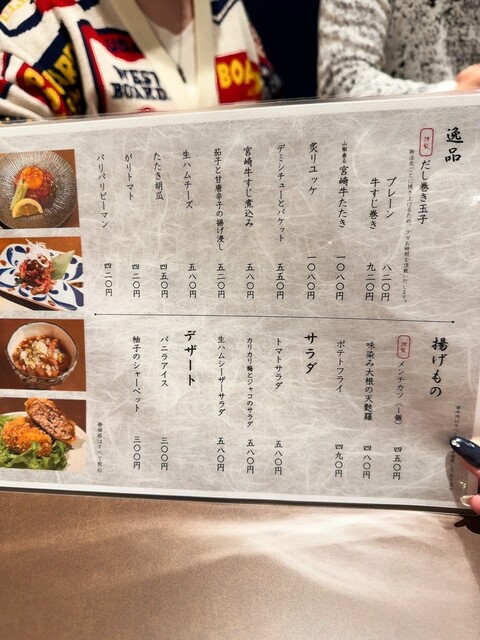 WEST
BOARD
BOA
逸品
特製
だし巻き玉子
御注文ごとに焼き上げるため、少々お時間を頂戴いたします。
プレーン 八二〇円
牛すじ巻き 九二〇円
山椒香る 宮崎牛たたき 一〇八〇円
炙りユッケ 一〇八〇円
デミシチューとバケット 五五〇円
宮崎牛すじ煮込み 五八〇円
茄子と甘唐辛子の揚げ浸し 五二〇円
生ハムチーズ 五八〇円
たたき胡瓜 四五〇円
がりトマト 四二〇円
パリパリピーマン 四二〇円
揚げもの
特製
メンチカツ(一個) 四五〇円
味染み大根の天麩羅 四八〇円
ポテトフライ 四九〇円
サラダ
トマトサラダ 五八〇円
カリカリ梅とジャコのサラダ 五八〇円
生ハムシーザーサラダ 五八〇円
デザート
バニラアイス 三〇〇円
柚子のシャーベット 三〇〇円
※価格はすべて税込